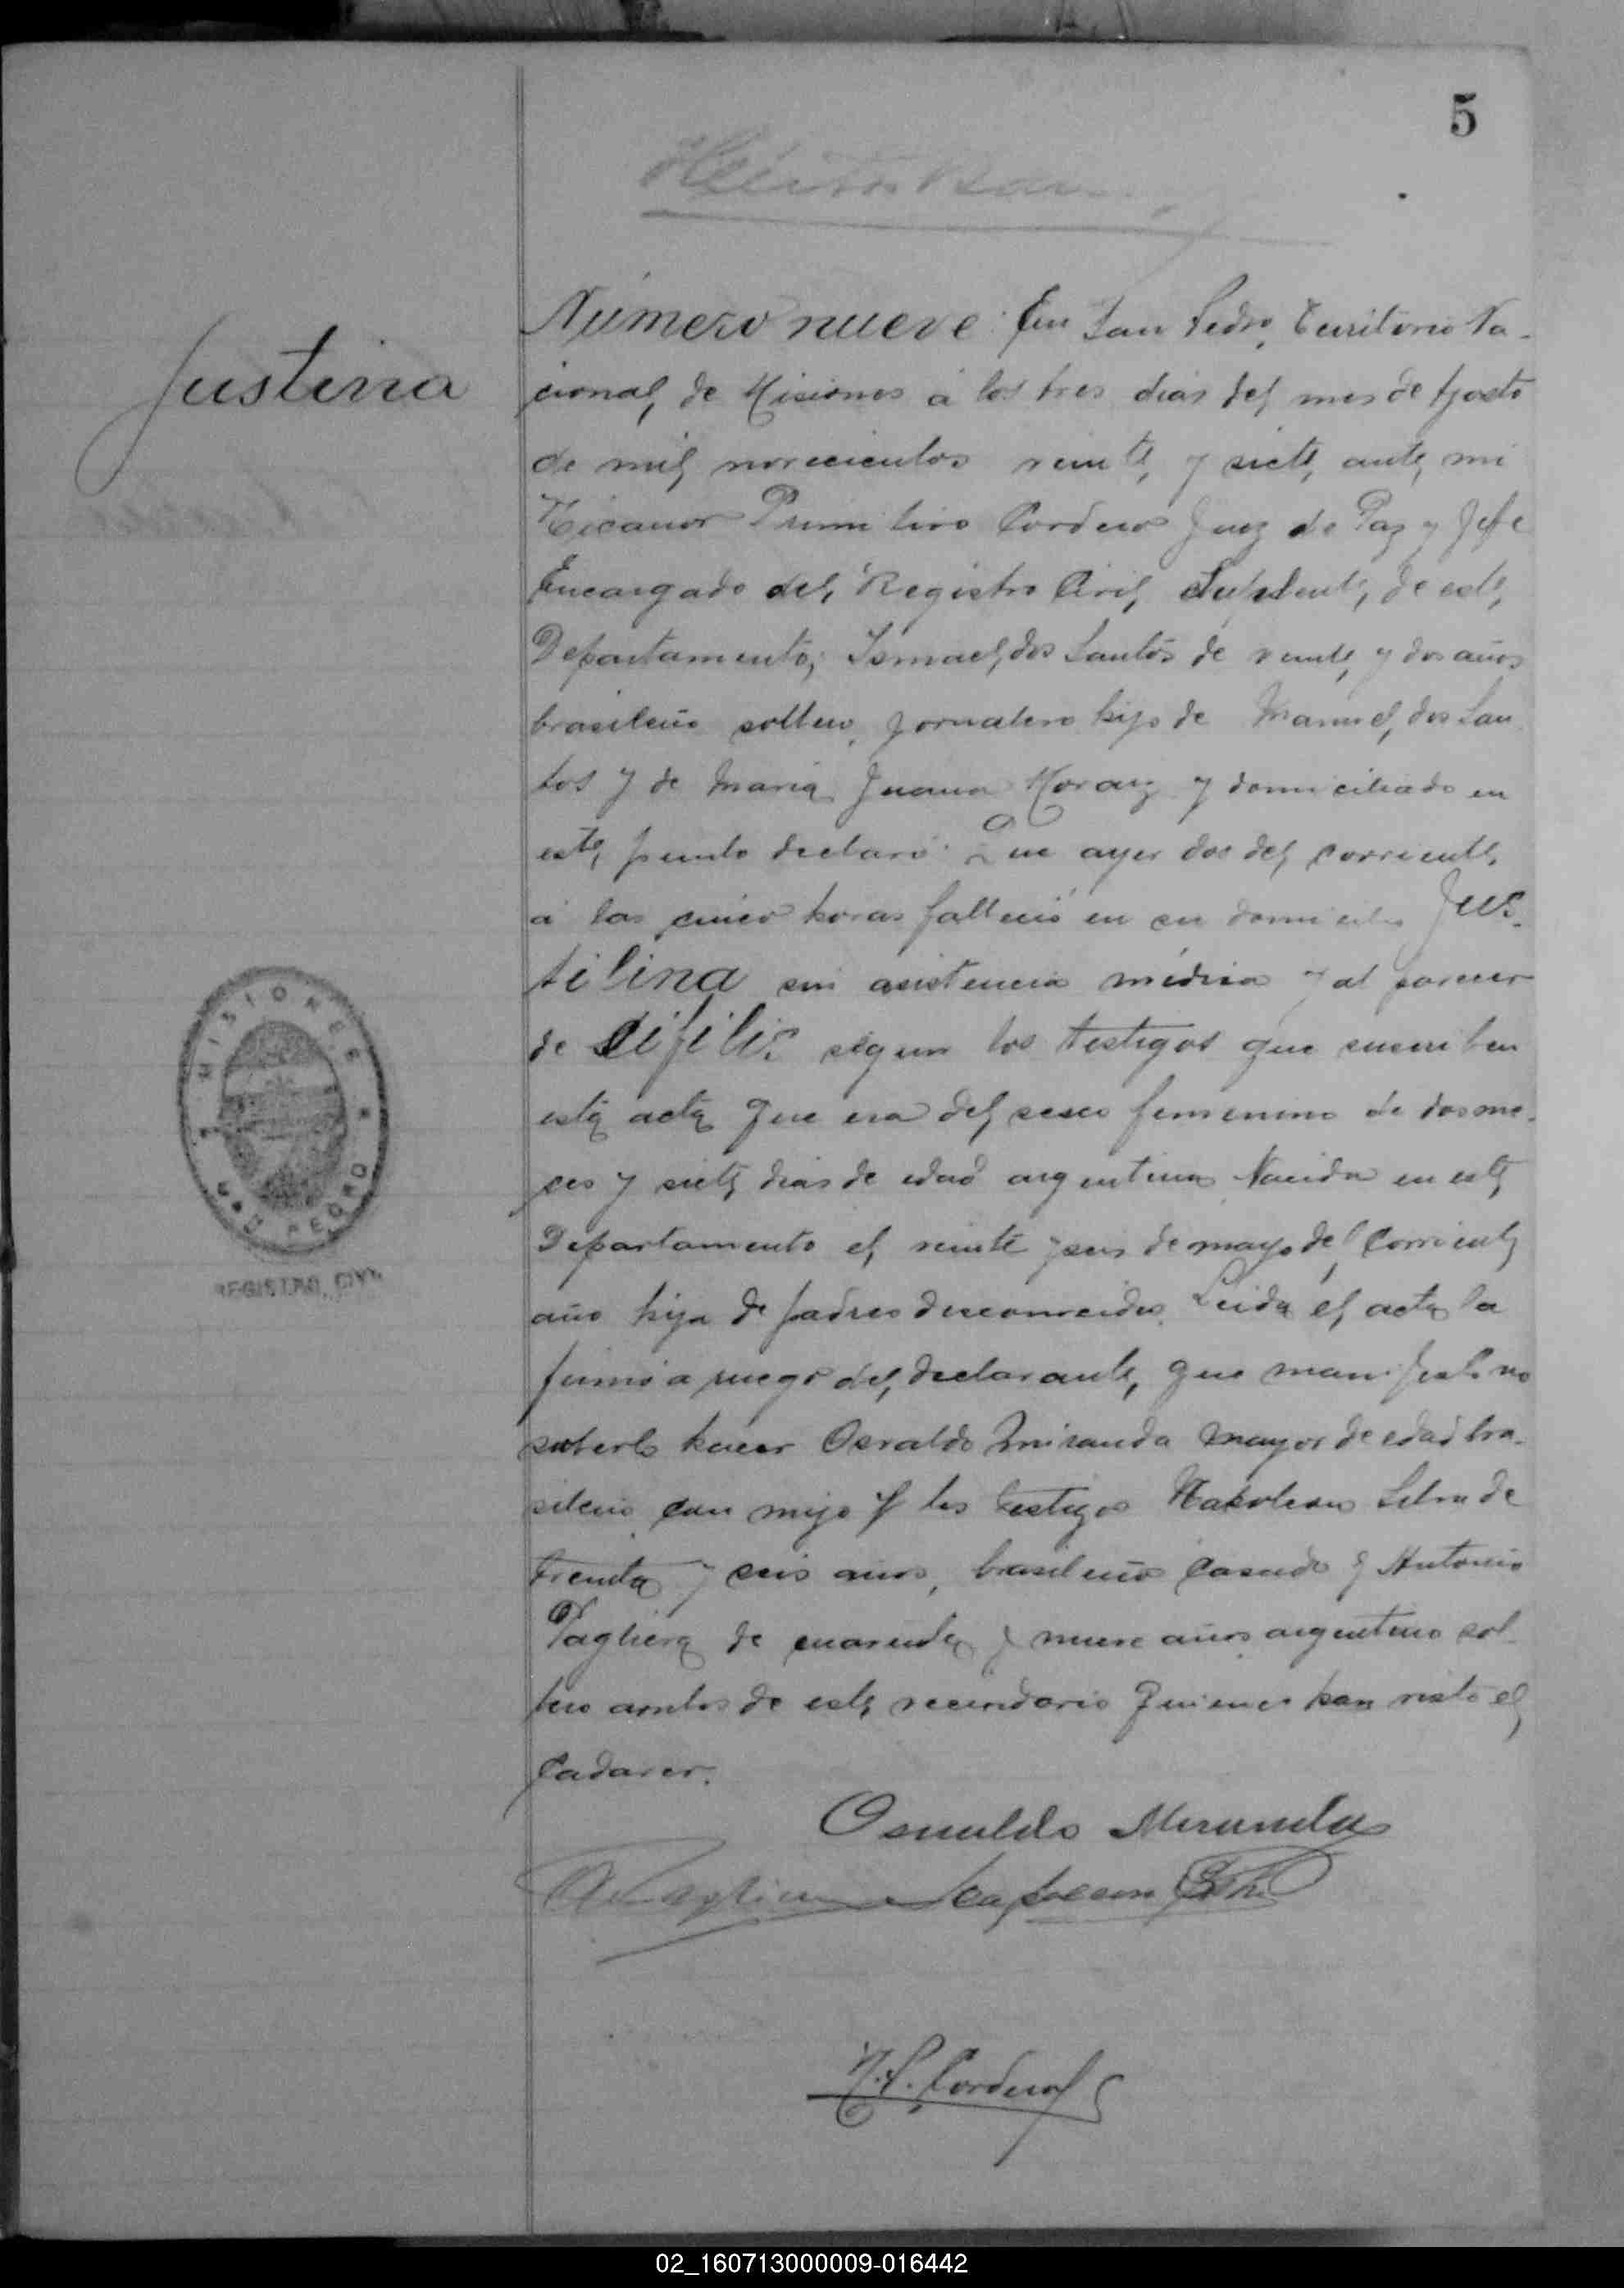 5
Justina
Número nueve En San Pedro, Territorio Na-
cional, de Misiones á los tres dias del mes de Agosto
de mil novecientos veinte y siete ante mi
Nicanor Primitivo Cordero Juez de Paz y Jefe
Encargado del Registro Civil Suplente, de este
Departamento; Ismael dos Santos de veinte y dos años
brasileño soltero, jornalero hijo de Manuel dos San
tos y de Maria Juana Moraiz y domiciliado en
este punto declaró: Que ayer dos del corriente
á las cinco horas falleció en su domicilio Jus-
tilina sin asistencia médica y al parecer
de sifilis segun los testigos que suscriben
esta acta que era del sexo femenino de dos me-
ses y siete dias de edad argentina Nacida en este
Departamento el veinte y seis de mayo del Corriente
año hija de padres desconocidos. Leida el acta la
firmó a ruego del declarante, que manifestó no
saberlo hacer Osvaldo Miranda mayor de edad bra-
sileño con migo y los testigos Napoleon Silva de
treinta y seis años, brasileño Casado y Antonio
Pagliera de cuarenta y nueve años argentino sol-
tero ambos de este vecindario Quienes han visto el
Cadaver.
Osvaldo Miranda
Napoleon
N. P. Cordero
MISIONES
SAN PEDRO
REGISTRO CIVIL
02_160713000009-016442